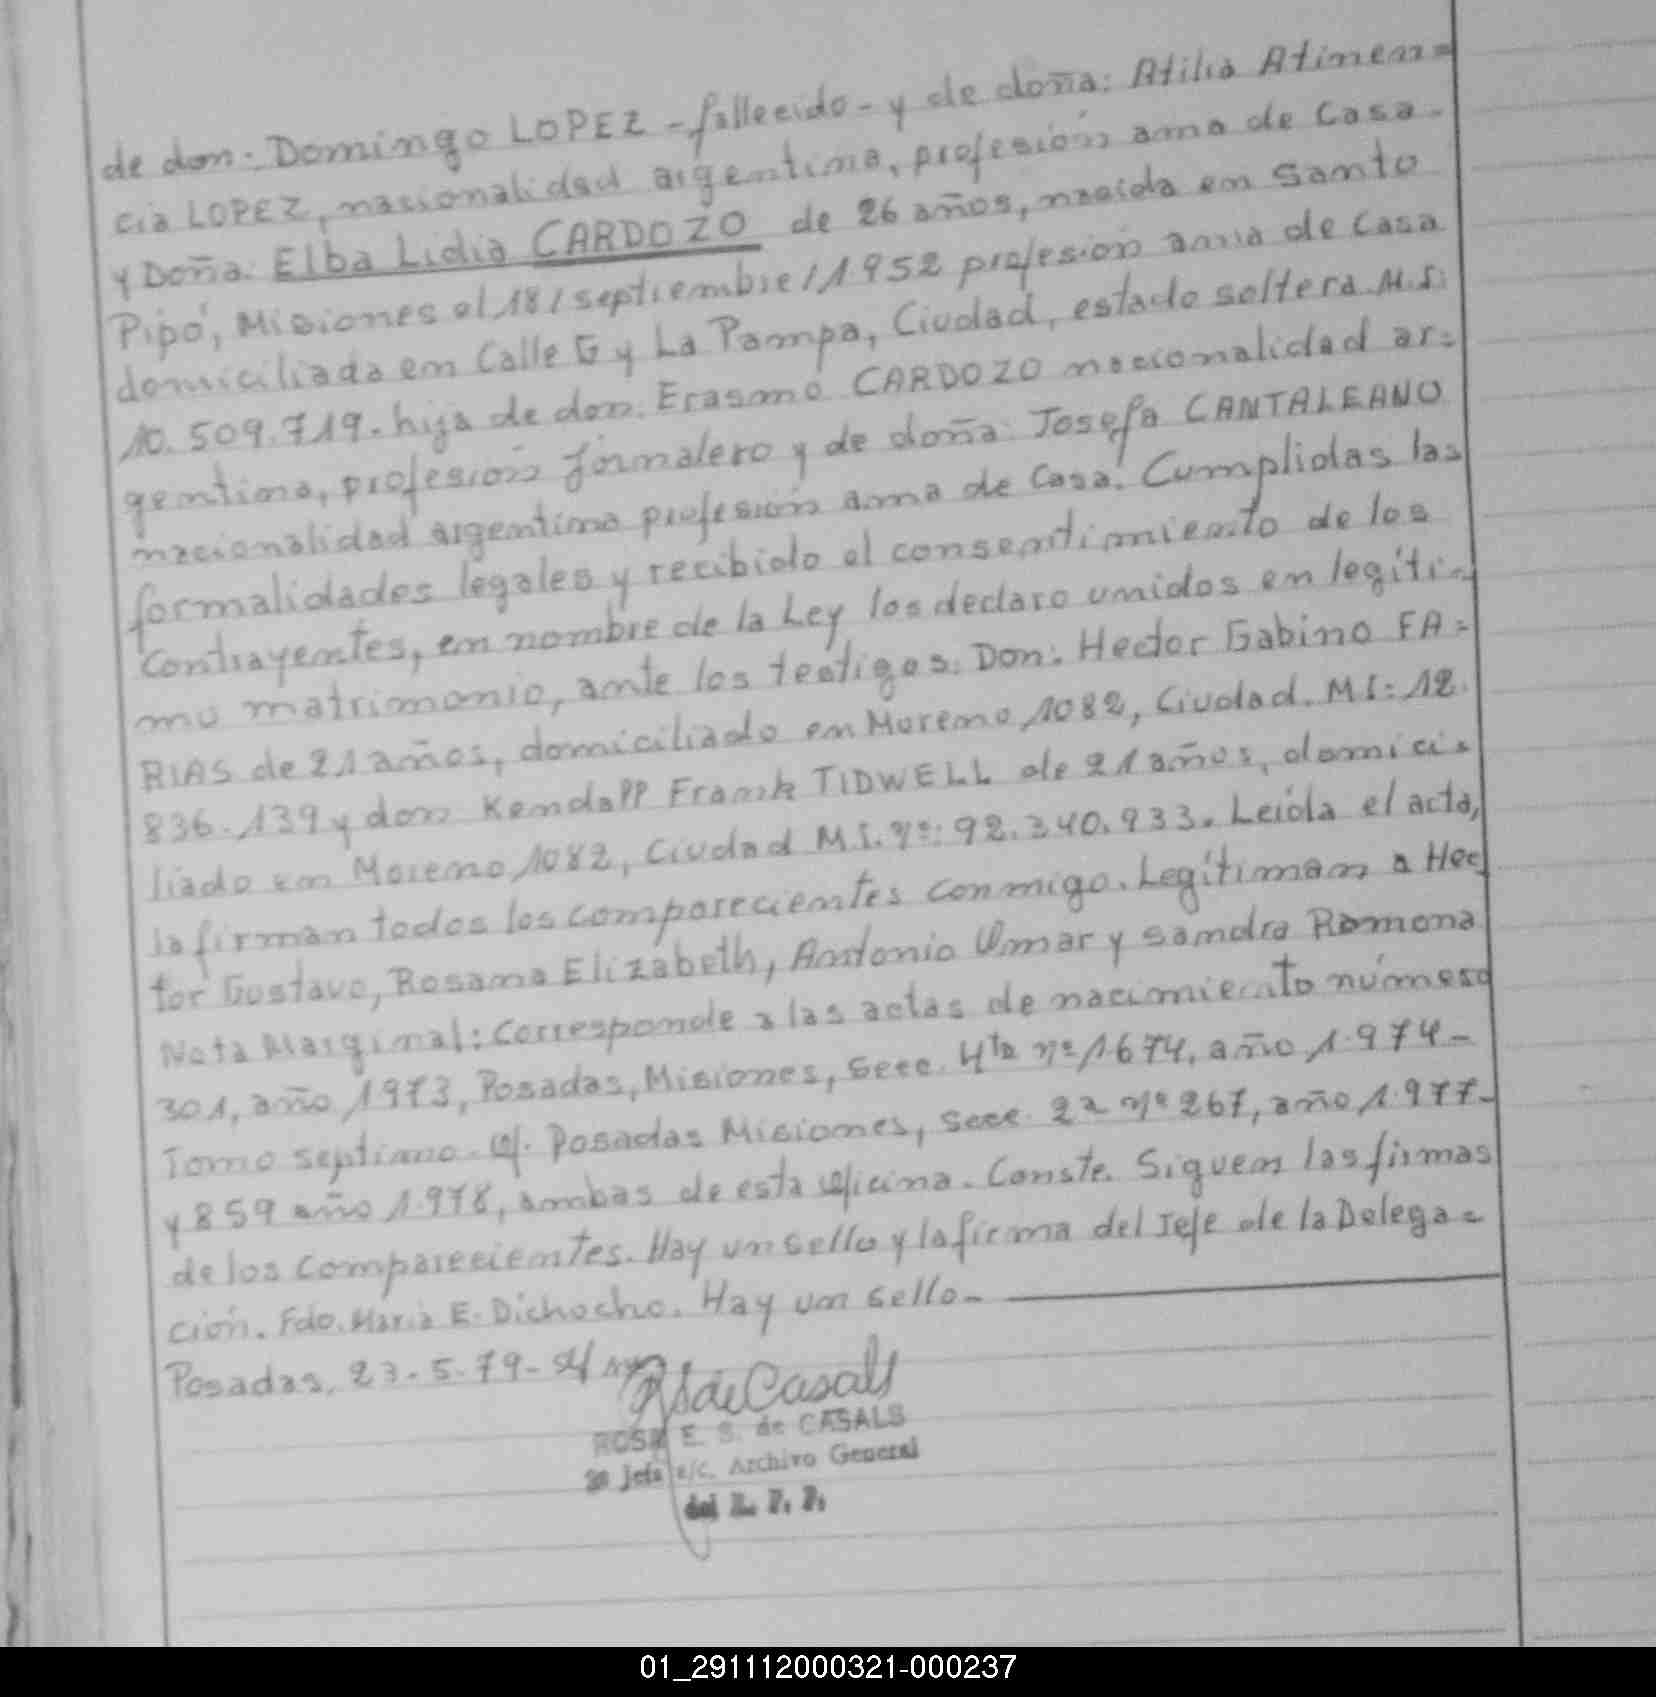 de don: Domingo LOPEZ - fallecido - y de doña: Atilia Atinen=
cia LOPEZ, nacionalidad argentina, profesión ama de casa.
y Doña: Elba Lidia CARDOZO de 26 años, nacida en Santo
Pipó, Misiones el 18/septiembre/1952 profesión ama de casa
domiciliada en Calle G y La Pampa, Ciudad, estado soltera. M.I:
10.509.719. hija de don: Erasmo CARDOZO nacionalidad ar=
gentina, profesión jornalero y de doña: Josefa CANTALEANO
nacionalidad argentina profesión ama de casa. Cumplidas las
formalidades legales y recibido el consentimiento de los
contrayentes, en nombre de la Ley los declaro unidos en legíti-
mo matrimonio, ante los testigos: Don: Hector Gabino FA=
RIAS de 21 años, domiciliado en Moreno 1082, Ciudad. MI: 12.
836.139 y don Kendall Frank TIDWELL de 21 años, domici=
liado en Moreno 1082, Ciudad M.I. nº: 92.340.933. Leída el acta,
la firman todos los comparecientes conmigo. Legitiman a Hec
tor Gustavo, Rosana Elizabeth, Antonio Omar y Sandra Ramona
Nota Marginal: Corresponde a las actas de nacimiento número
301, año 1973, Posadas, Misiones, Secc. 4ta nº 1674, año 1.974-
Tomo septimo. Of. Posadas Misiones, Secc. 2a nº 267, año 1.977-
y 859 año 1.978, ambas de esta oficina. Conste. Siguen las firmas
de los comparecientes. Hay un sello y la firma del Jefe de la Delega=
ción. Fdo. Maria E. Dichocho. Hay un sello-
Posadas, 23-5-79-
RSdeCasals
ROSA E. S. de CASALS
Jefa e/c. Archivo General
del R. P. P.
01_291112000321-000237